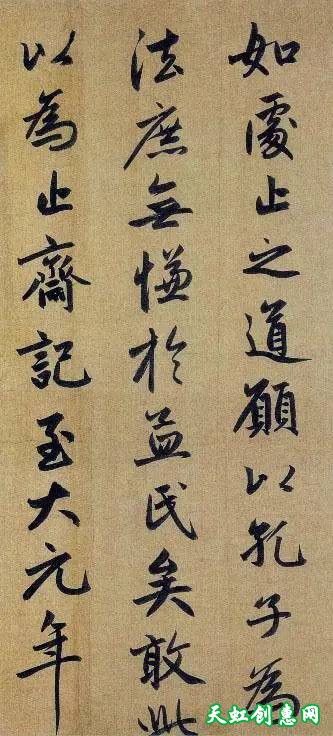 如處止之道願以孔子為
法庶無慊於益民矣敢此
以為止齋記至大元年
天虹创惠网